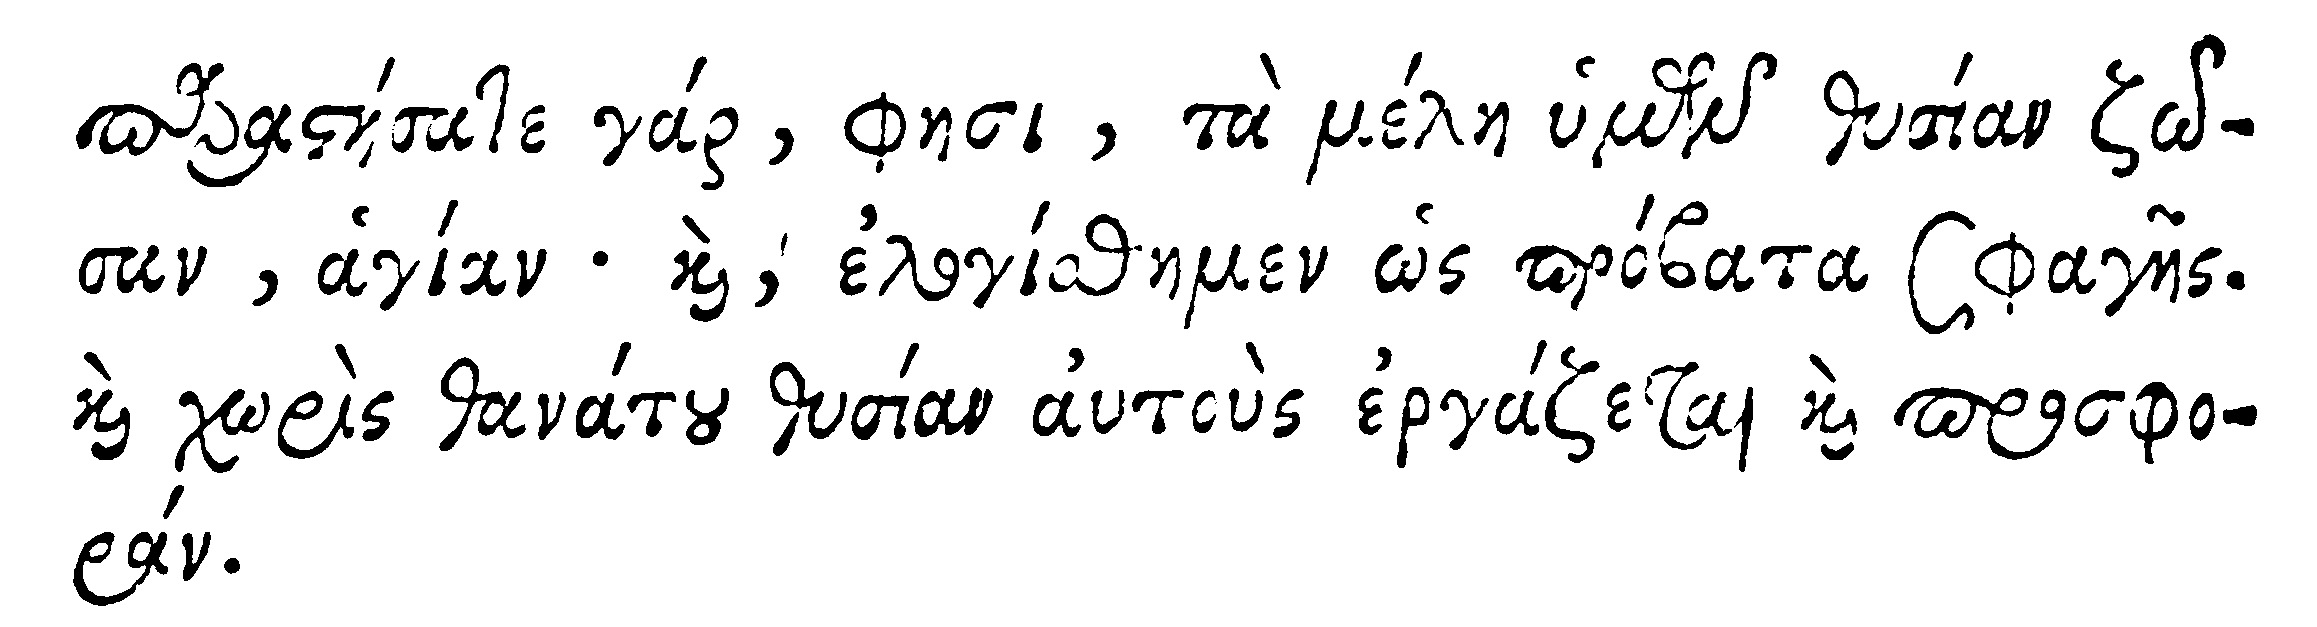 παραστήσατε γάρ, φησι, τὰ μέλη ὑμῶν θυσίαν ζῶ-
σαν, ἁγίαν · καὶ, ἐλογίσθημεν ὡς πρόβατα σφαγῆς.
καὶ χωρὶς θανάτου θυσίαν αὐτοὺς ἐργάζεται καὶ προσφο-
ράν.